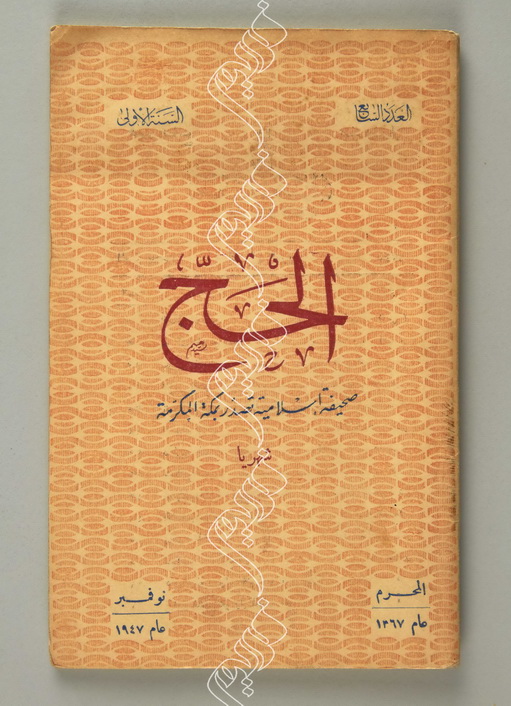 العدد السابع
السنة الأولى
الحج
صحيفة إسلامية تصدر بمكة المكرمة
شهريا
المحرم
عام ١٣٦٧
نوفمبر
عام ١٩٤٧